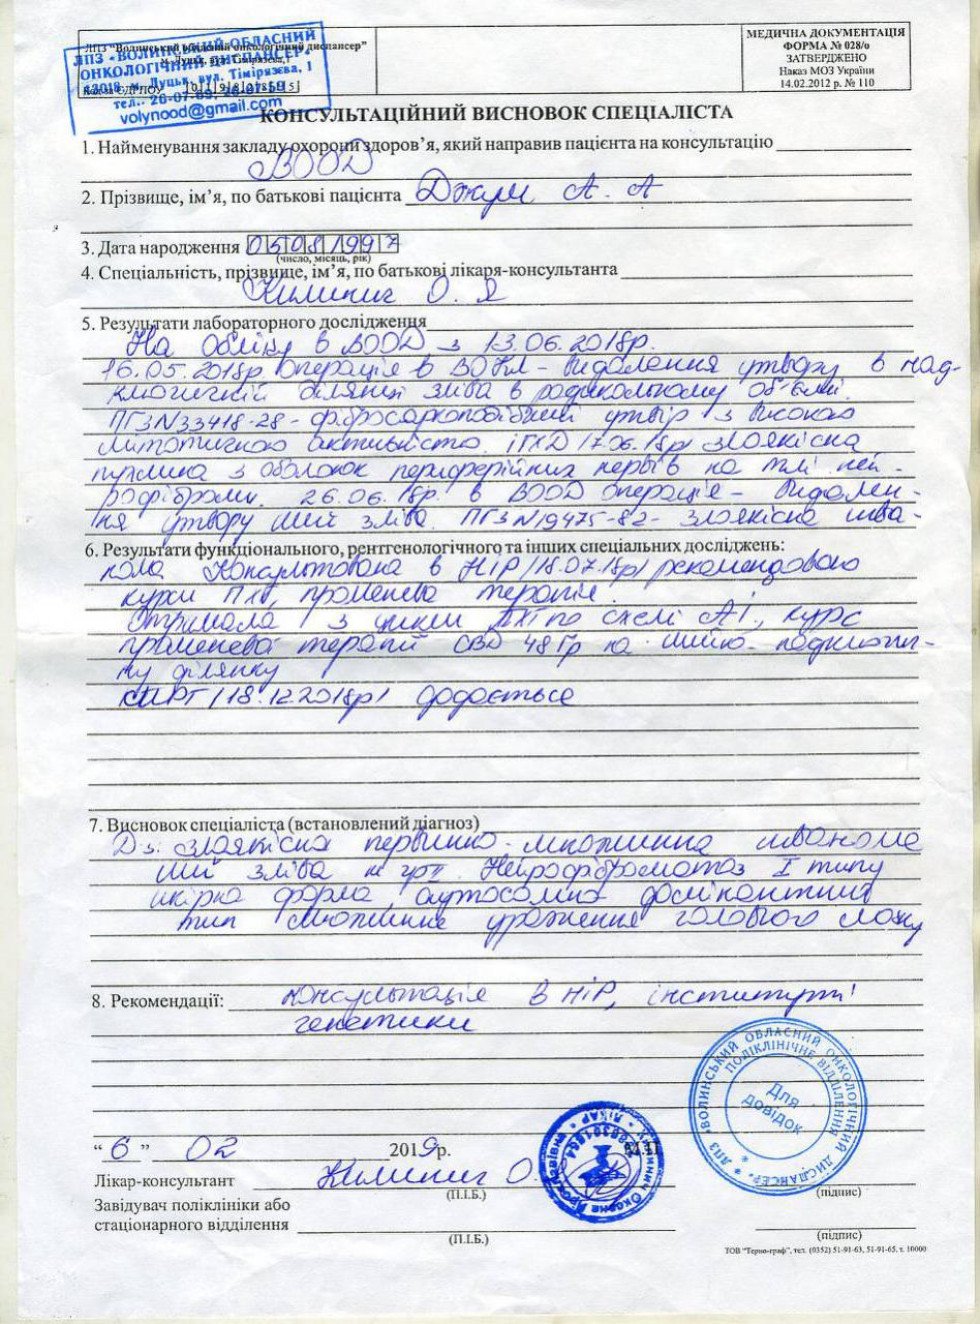 ЛПЗ "Волинський обласний онкологічний диспансер"
м. Луцьк, вул. Тімірязєва, 1
ЛПЗ «ВОЛИНСЬКИЙ ОБЛАСНИЙ
ОНКОЛОГІЧНИЙ ДИСПАНСЕР»
43018, м. Луцьк, вул. Тімірязєва, 1
тел.: 26-07-69; 26-07-59
volynood@gmail.com
МЕДИЧНА ДОКУМЕНТАЦІЯ
ФОРМА № 028/о
ЗАТВЕРДЖЕНО
Наказ МОЗ України
14.02.2012 р. № 110
КОНСУЛЬТАЦІЙНИЙ ВИСНОВОК СПЕЦІАЛІСТА
1. Найменування закладу охорони здоров'я, який направив пацієнта на консультацію
ВООД
2. Прізвище, ім'я, по батькові пацієнта А. А
3. Дата народження 05081997
(число, місяць, рік)
4. Спеціальність, прізвище, ім'я, по батькові лікаря-консультанта
О. Я
5. Результати лабораторного дослідження
На обліку в ВООД з 13.06.2018р.
16.05.2018р операція в ВОКЛ - видалення утвору в над-
ключичній ділянці зліва в радикальному об'ємі.
ПГЗ N33418-28 - фібросаркоподібний утвір з високою
мітотичною активністю. ІГХД 17.06.18р злоякісна
пухлина з оболонок периферійних нервів на тлі ней-
рофіброми. 26.06.18р. в ВООД операція - видален-
ня утвору шиї зліва. ПГЗ N19475-82 - злоякісна шва-
6. Результати функціонального, рентгенологічного та інших спеціальних досліджень:
нома Консультована в НІР /18.07.18р/ рекомендовано
курси ПХТ, променева терапія.
Отримала 3 цикли ПХТ по схемі АІ, курс
променевої терапії СВД 48Гр на шийно-надключич-
ну ділянку
/18.12.2018р/ додається
7. Висновок спеціаліста (встановлений діагноз)
Дз. злоякісна первинно-множинна шванома
шиї зліва гр. Нейрофіброматоз I типу
шкірна форма, аутосомно домінантний
тип множинне ураження головного мозку
8. Рекомендації: консультація в НІР, інституті
генетики
"6" 02 2019р.
М.П.
Лікар-консультант О.
(П.І.Б.)
(підпис)
Завідувач поліклініки або
стаціонарного відділення
(П.І.Б.)
(підпис)
ЛПЗ "ВОЛИНСЬКИЙ ОБЛАСНИЙ ОНКОЛОГІЧНИЙ ДИСПАНСЕР"
ПОЛІКЛІНІЧНЕ ВІДДІЛЕННЯ
Для
довідок
ЛІКАР
ТОВ "Терно-граф", тел. (0352) 51-91-63, 51-91-65, т. 10000